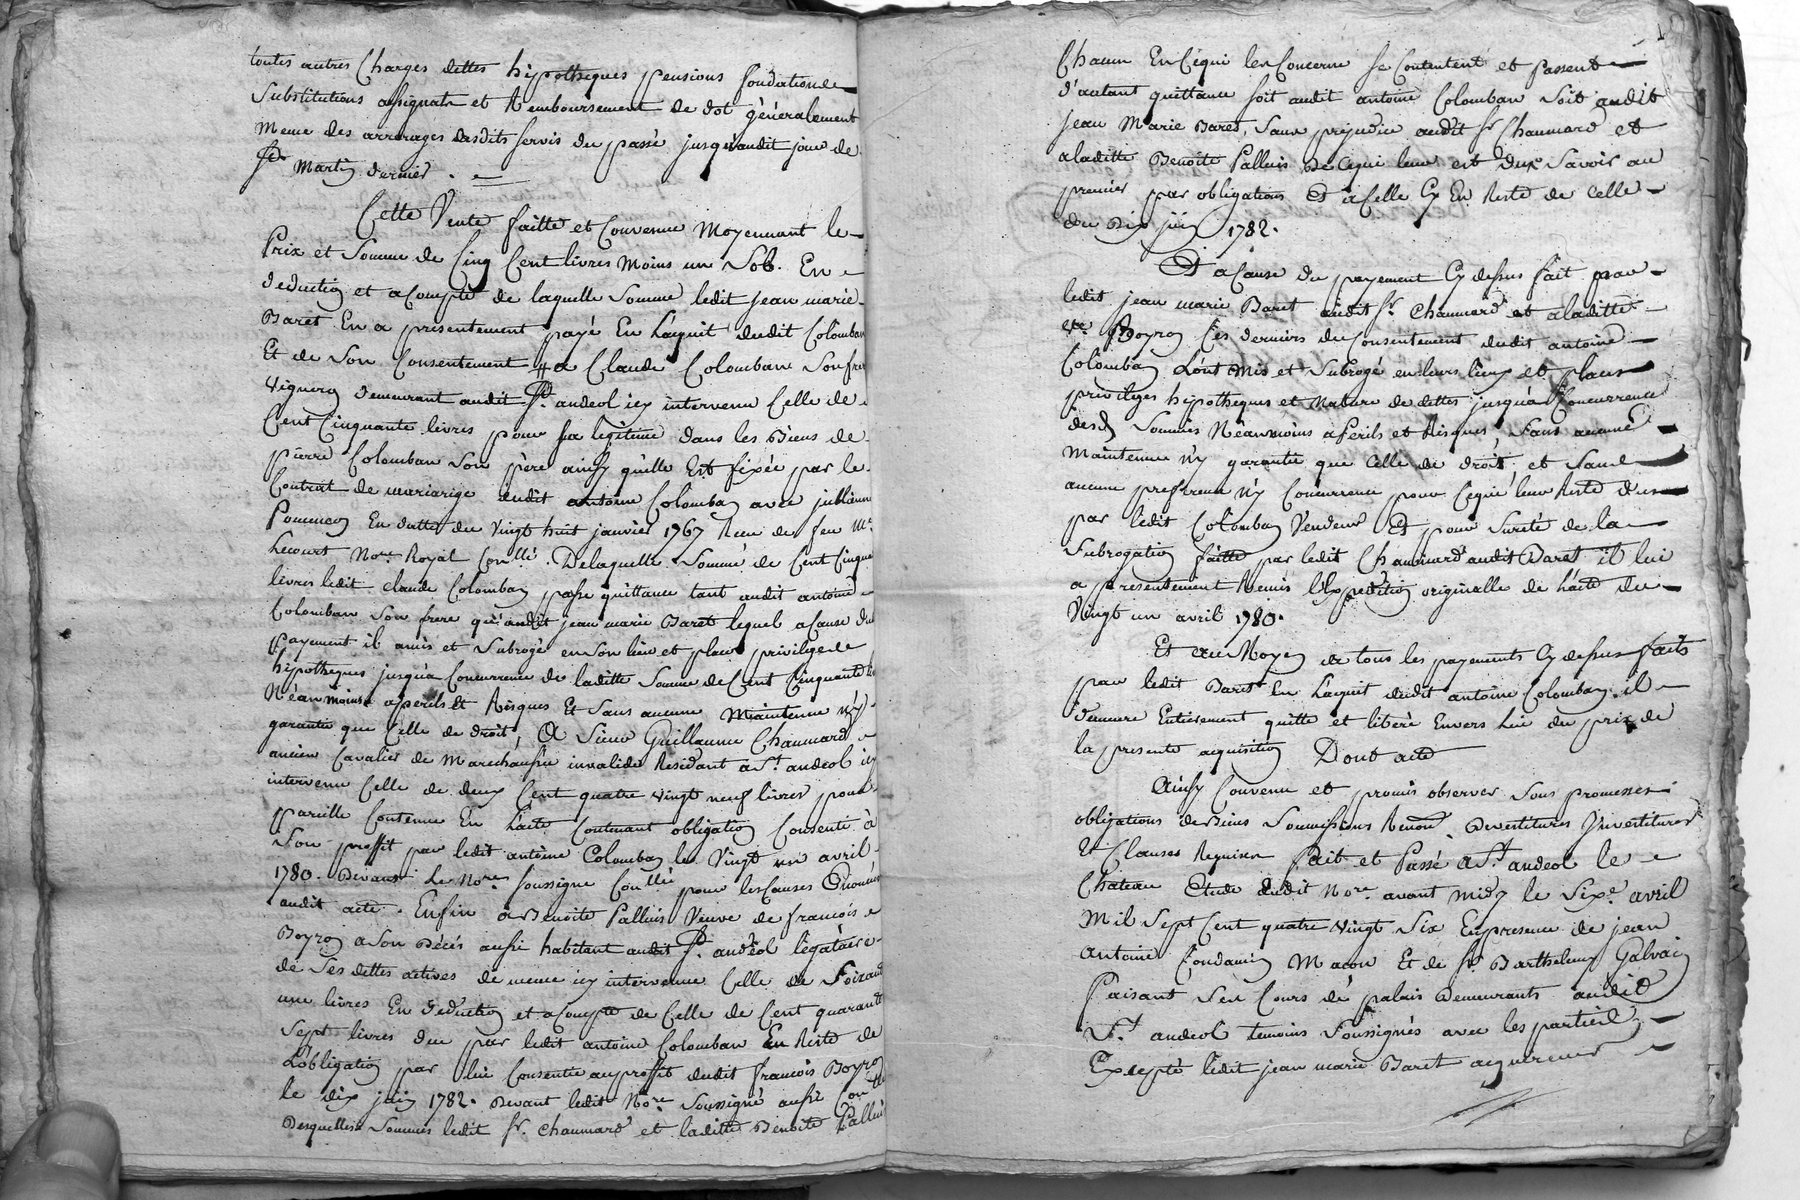 toutes autres Charges dettes hipotheques pensions fondations
Substitutions assignats et Remboursement de dot généralement
Meme des arrerages desdits servis du passé jusqu'audit jour de
St Martin dernier .
Cette Vente faitte et Convenue Moyennant le
Prix et Somme de Cinq Cent livres Moins un Sol. En
deduction et acompte de laquelle Somme ledit jean marie
Baret En a presentement payé En L'acquit dudit Colomban
Et de Son Consentement a Claude Colomban Son frere
Vigneron demeurant audit St. andeol icy intervenu Celle de
Cent Cinquante livres pour sa legitime dans les Biens de
pierre Colomban Son père ainsy qu'elle Est fixée par le
Contrat de mariarige dudit antoine Colomban avec jullienne
Pommerey En datte du Vingt huit janvier 1767 Recu de feu Me
Lecourt Nore Royal Conllé. Delaquelle Somme de Cent Cinquante
livres ledit claude Colomban passe quittance tant audit antoine
Colomban Son frere qu'audit jean marie Baret lequel acause dudit
payement il amis et Subrogé en Son lieu et place privilege
hipotheques jusqu'a Concurrence de laditte Somme de Cent Cinquante
Néanmoins aperils et Risques Et Sans aucune Maintenue n'y
garantie que Celle de droit, A Sieur Guillaume Chaumard
ancien Cavalier de Marechaussée invalide Residant a St. andeol icy
intervenu Celle de deux Cent quatre vingt neuf livres pour
pareille Contenue En L'acte Contenant obligation Consenti à
Son proffit par ledit antoine Colomban le Vingt un avril
1780. Devant Le Nore soussigné Conllé pour les Causes Enoncées
audit acte. Enfin à Benoite Palluis Veuve de francois
Boyron a Son Décés aussi habitant audit St. andeol légataire
de Ses dettes actives de meme icy intervenue Celle de Soixante
une livres En deduction et acompte de Celle de Cent quarante
Sept livres due par ledit antoine Colomban En Reste de
L'obligation par lui Consentie auproffit dudit francois Boyron
le dix juin 1782. Devant ledit Nore Soussigné aussi Conllé
Desquelles Sommes ledit Sr. Chaumard et laditte Benoite Palluis
Chacun En Cequi les Concerne se Contentent et passent
d'autant quittance soit audit antoine Colomban Soit audit
jean Marie Baret, Sans prejudice audit Sr Chaumard et
aladitte Benoite Palluis de Cequi leur est dux Savoir au
premier par obligations Et a Celle Cy En Reste de Celle
du Dix juin 1782.
Et a Cause du payement Cy dessus fait par
ledit jean marie Baret audit Sr. Chaumard et aladitte
ve. Boyron Ces derniers du Consentement dudit antoine
Colomban L'ont mis et Subrogé en leurs lieux et places
privileges hipotheques et Nature de dettes jusqu'à Concurrence
desd. Sommes Néanmoins aPerils et Risques, Sans aucune
Maintenue n'y garantie que Celle de droit, et Sans
aucune preference n'y Concurrence pour Cequi leur Reste dus
par ledit Colomban Vendeur Et pour Sureté de la
Subrogation faitte par ledit Chaumard audit Baret il lui
a presentement Remis L'Expedition originalle de L'acte du
Vingt un avril 1780.
Et au Moyen de tous les payements Cy dessus faits
par ledit Baret En L'acquit dudit antoine Colomban. il
demeure Entierement quitte et liberé Envers Lui du prix de
la presente acquisition Dont acte
Ainsy Convenu et promis observer Sous promesses
obligations de Biens Soumissions Renond. Devestitures Ynvestitures
Et Clauses Requises fait et Passé a St. andeol le
Chateau Etude dudit Nore avant midy le Sixe. avril
Mil Sept Cent quatre Vingt Six Enpresence de jean
antoine Condamin Macon Et de Sr. Barthelemy Galvain
faisant Ses Cours de palais Demeurants audit
St. andeol temoins Soussignés avec les parties
Excepté ledit jean marie Baret acquereur